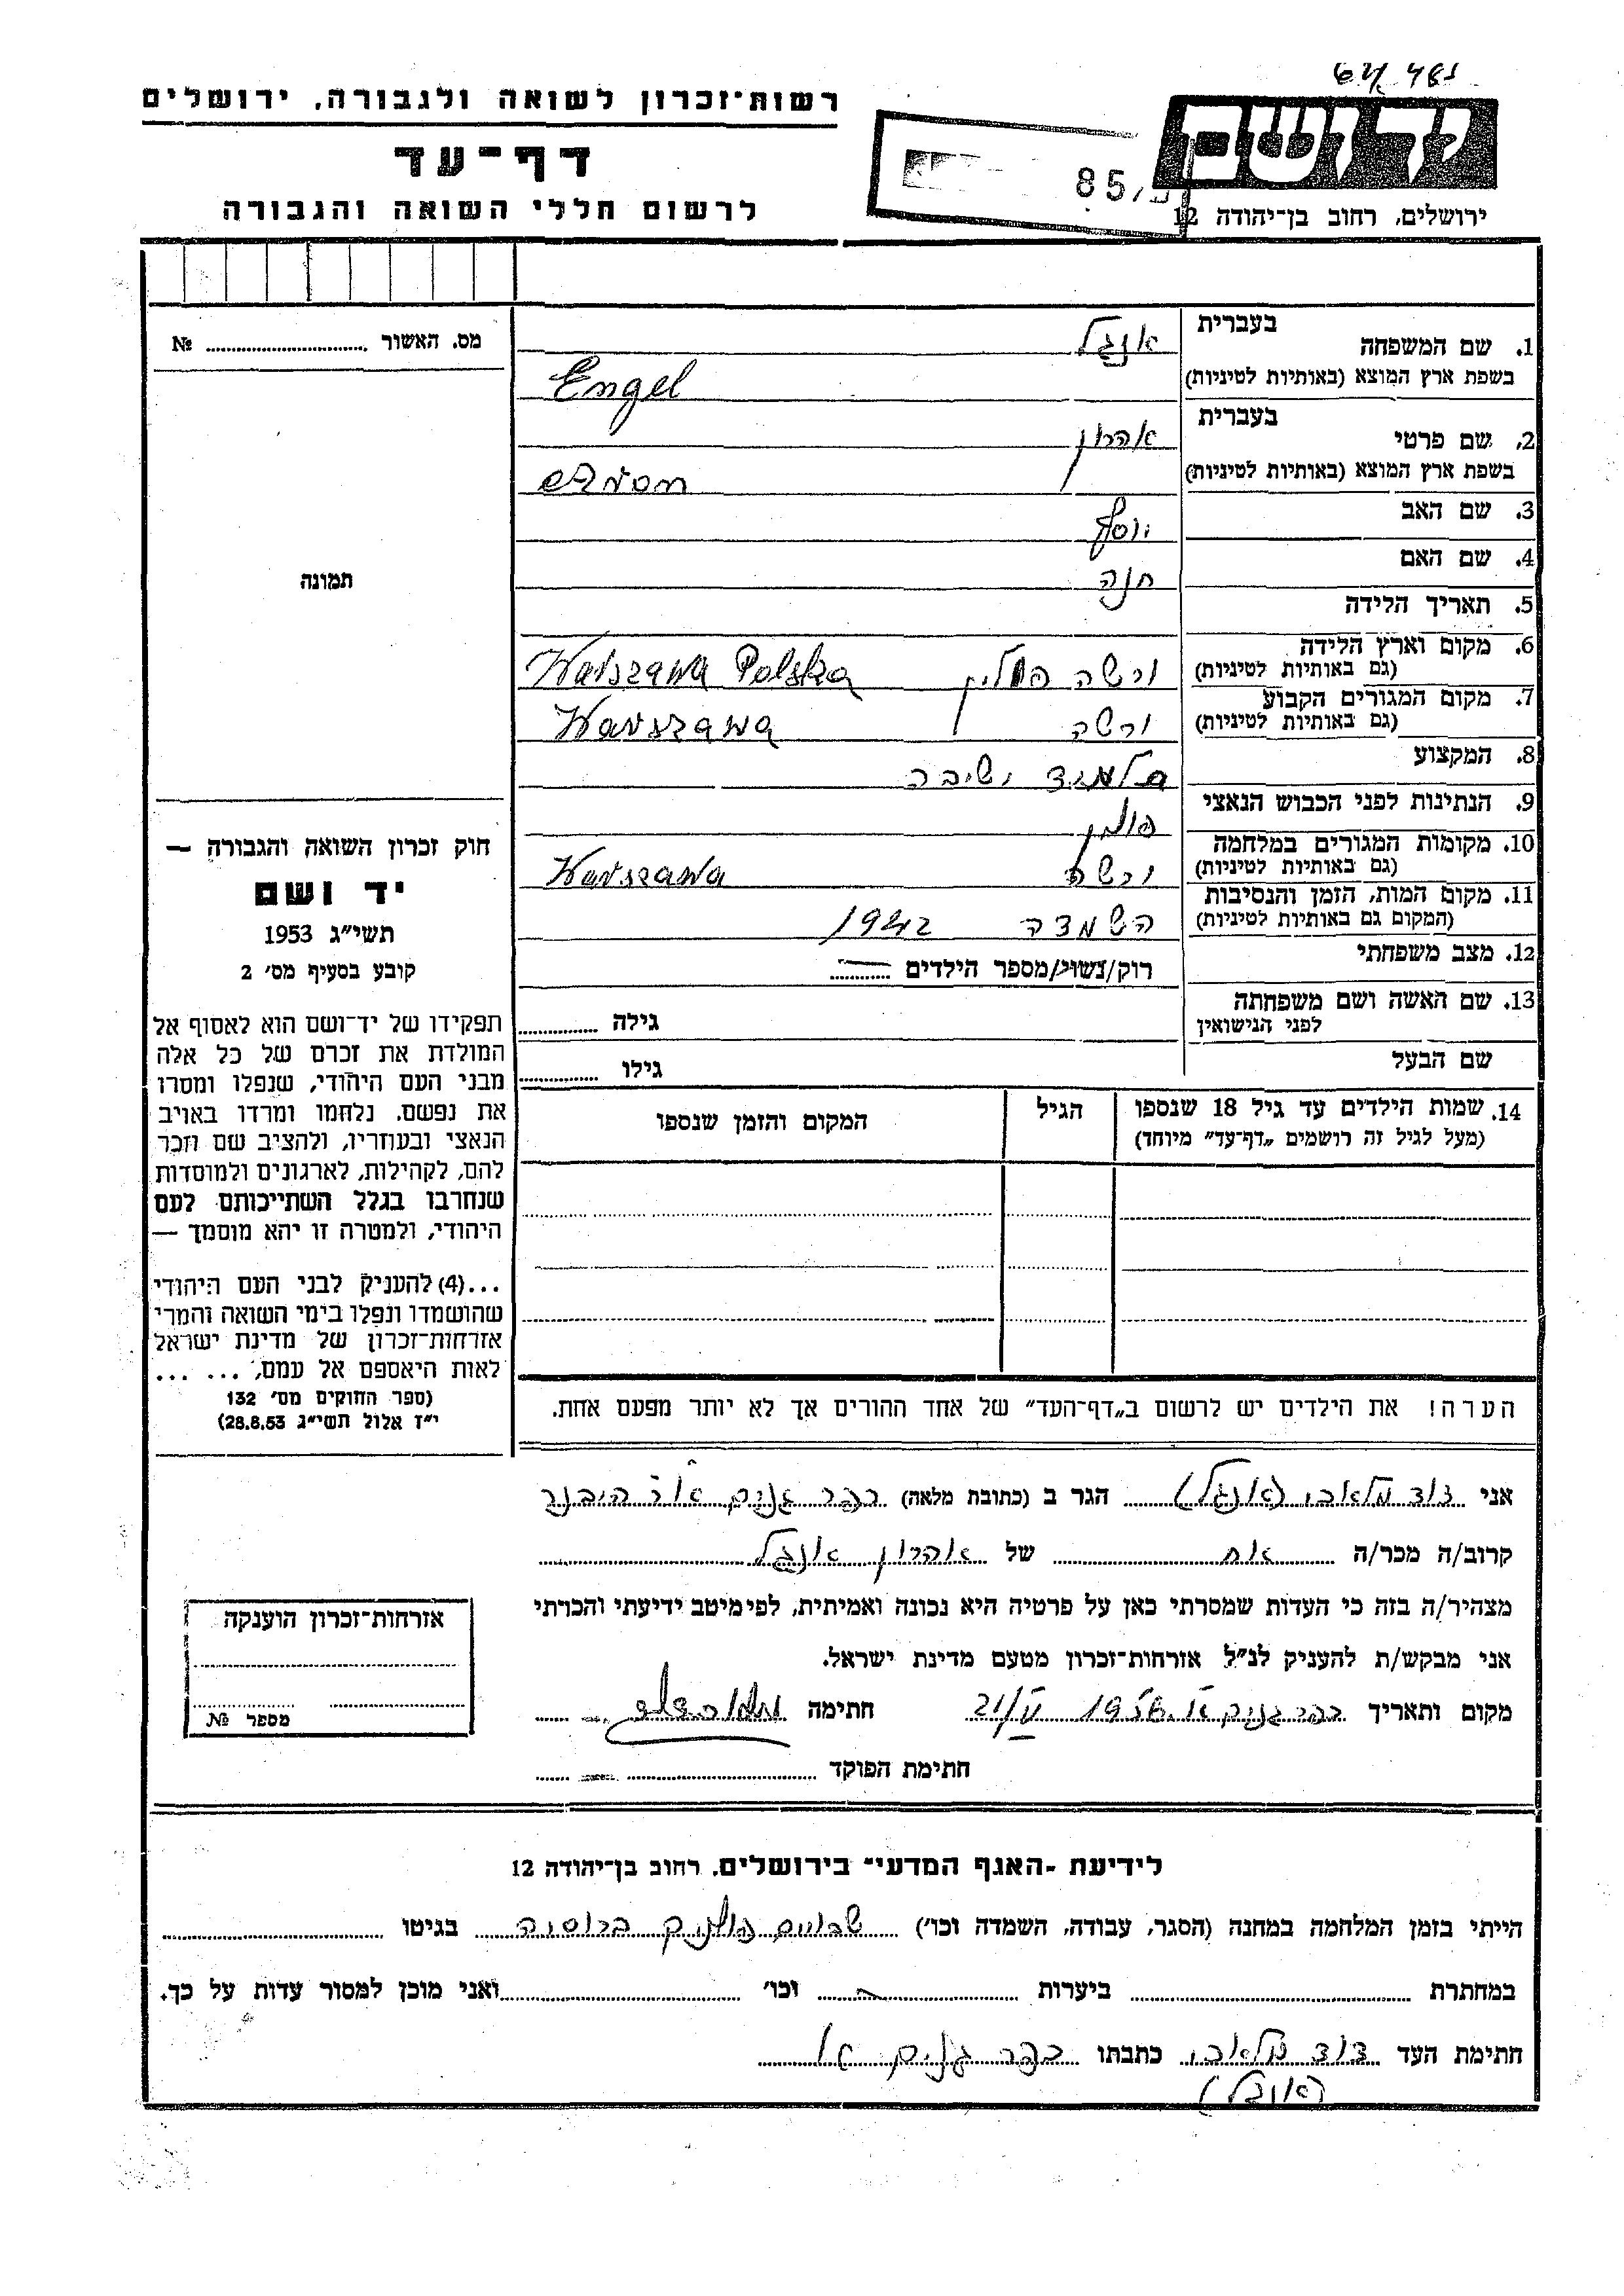 רשות־זכרון לשואה ולגבורה, ירושלים
דף־עד
לרשום חללי השואה והגבורה
יד ושם
ירושלים, רחוב בן־יהודה 12
85
מס. האשור № ..........
תמונה
1. שם המשפחה בעברית אנגל
בשפת ארץ המוצא (באותיות לטיניות) Engel
2. שם פרטי בעברית אהרון
בשפת ארץ המוצא (באותיות לטיניות) Aron
3. שם האב יוסף
4. שם האם חנה
5. תאריך הלידה
6. מקום וארץ הלידה (גם באותיות לטיניות) ורשה פולין Warszawa Polska
7. מקום המגורים הקבוע (גם באותיות לטיניות) ורשה Warszawa
8. המקצוע תלמיד ישיבה
9. הנתינות לפני הכבוש הנאצי פולין
10. מקומות המגורים במלחמה (גם באותיות לטיניות) ורשה Warszawa
11. מקום המות, הזמן והנסיבות (המקום גם באותיות לטיניות) השמדה 1942
12. מצב משפחתי רוק/נשוי/מספר הילדים ..........
13. שם האשה ושם משפחתה לפני הנישואין גילה ..........
שם הבעל גילו ..........
14. שמות הילדים עד גיל 18 שנספו (מעל לגיל זה רושמים „דף־עד" מיוחד) הגיל המקום והזמן שנספו
הערה! את הילדים יש לרשום ב„דף־העד" של אחד ההורים אך לא יותר מפעם אחת.
חוק זכרון השואה והגבורה —
יד ושם
תשי"ג 1953
קובע בסעיף מס׳ 2
תפקידו של יד־ושם הוא לאסוף אל
המולדת את זכרם של כל אלה
מבני העם היהודי, שנפלו ומסרו
את נפשם, נלחמו ומרדו באויב
הנאצי ובעוזריו, ולהציב שם וזכר
להם, לקהילות, לארגונים ולמוסדות
שנחרבו בגלל השתייכותם לעם
היהודי, ולמטרה זו יהא מוסמך —
...(4) להעניק לבני העם היהודי
שהושמדו ונפלו בימי השואה והמרי
אזרחות־זכרון של מדינת ישראל
לאות היאספם אל עמם, ... ...
(ספר החוקים מס׳ 132
י"ז אלול תשי"ג 28.8.53)
אני דוד מלאכי (אנגל) הגר ב (כתובת מלאה) כפר גנים א'
קרוב/ה מכר/ה אח של אהרון אנגל
מצהיר/ה בזה כי העדות שמסרתי כאן על פרטיה היא נכונה ואמיתית, לפי מיטב ידיעתי והכרתי
אני מבקש/ת להעניק לנ"ל אזרחות־זכרון מטעם מדינת ישראל.
מקום ותאריך כפר גנים א. 1956 חתימה
חתימת הפוקד ..........
אזרחות־זכרון הוענקה
מספר №
לידיעת ־האגף המדעי־ בירושלים, רחוב בן־יהודה 12
הייתי בזמן המלחמה במחנה (הסגר, עבודה, השמדה וכו׳) ברוסיה בגיטו ..........
במחתרת .......... ביערות .......... וכו׳ .......... ואני מוכן למסור עדות על כך.
חתימת העד דוד מלאכי כתבתו כפר גנים א'
(אנגל)